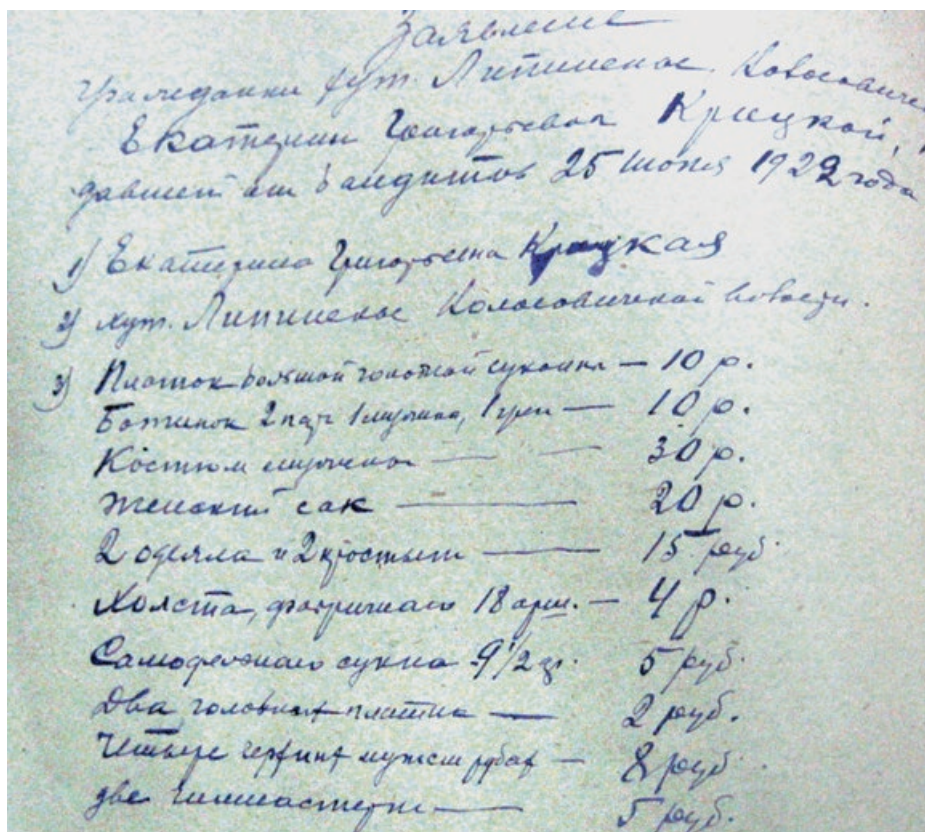 Заявление
Гражданки хут. Липинское. Колосовиче
Екатерин Григорьевна Крицкой,
давшей от бандитов 25 июня 1922 года
1) Екатерина Григорьевна Крицкая
2) хут. Липинское Колосовичской волости.
3) Платок большой головной суконна — 10 р.
Ботинок 2 пар 1 мужина, 1 — 10 р.
Костюм мужское — — 30 р.
Женский сак — 20 р.
2 одеяла и 2 простыни — 15 руб.
Холста, фабричнаго 18 арш. — 4 р.
Самодельнаго сукна 9 1/2 5 руб.
Два головных платка — 2 руб.
Четыре мужск рубах — 8 руб.
две гимнастерки — 5 руб.